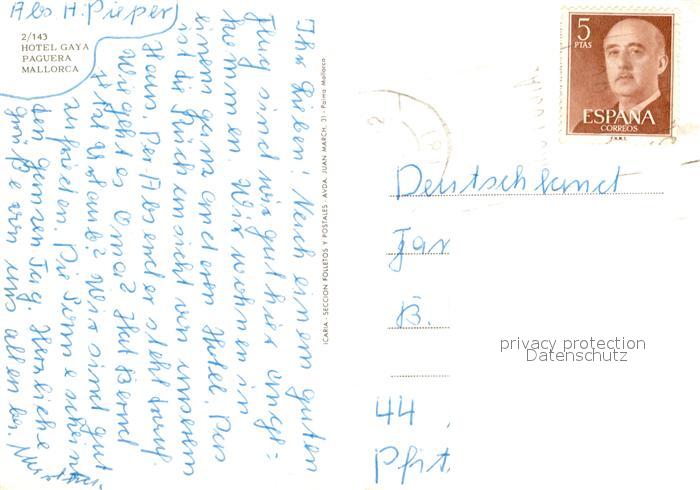 Abs H. Pieper
2/143
HOTEL GAYA
PAGUERA
MALLORCA
Ihr Lieben! Nach einem guten
Flug sind wir gut hier ange=
kommen. Wir wohnen in
einem ganz anderen Hotel. Das
ist die Rückansicht von unserem
Haus. Der Absender steht drauf.
Wie geht es Oma? Hat Bernd
jetzt Urlaub? Wir sind gut
zufrieden. Die Sonne scheint
den ganzen Tag. Herzliche
Grüße von uns allen bes.
ICARIA - SECCION FOLLETOS Y POSTALES - AVDA. JUAN MARCH, 31 - Palma Mallorca
5
PTAS
ESPAÑA
CORREOS
F.N.M.T.
Deutschland
Fam
B.
44
privacy protection
Datenschutz